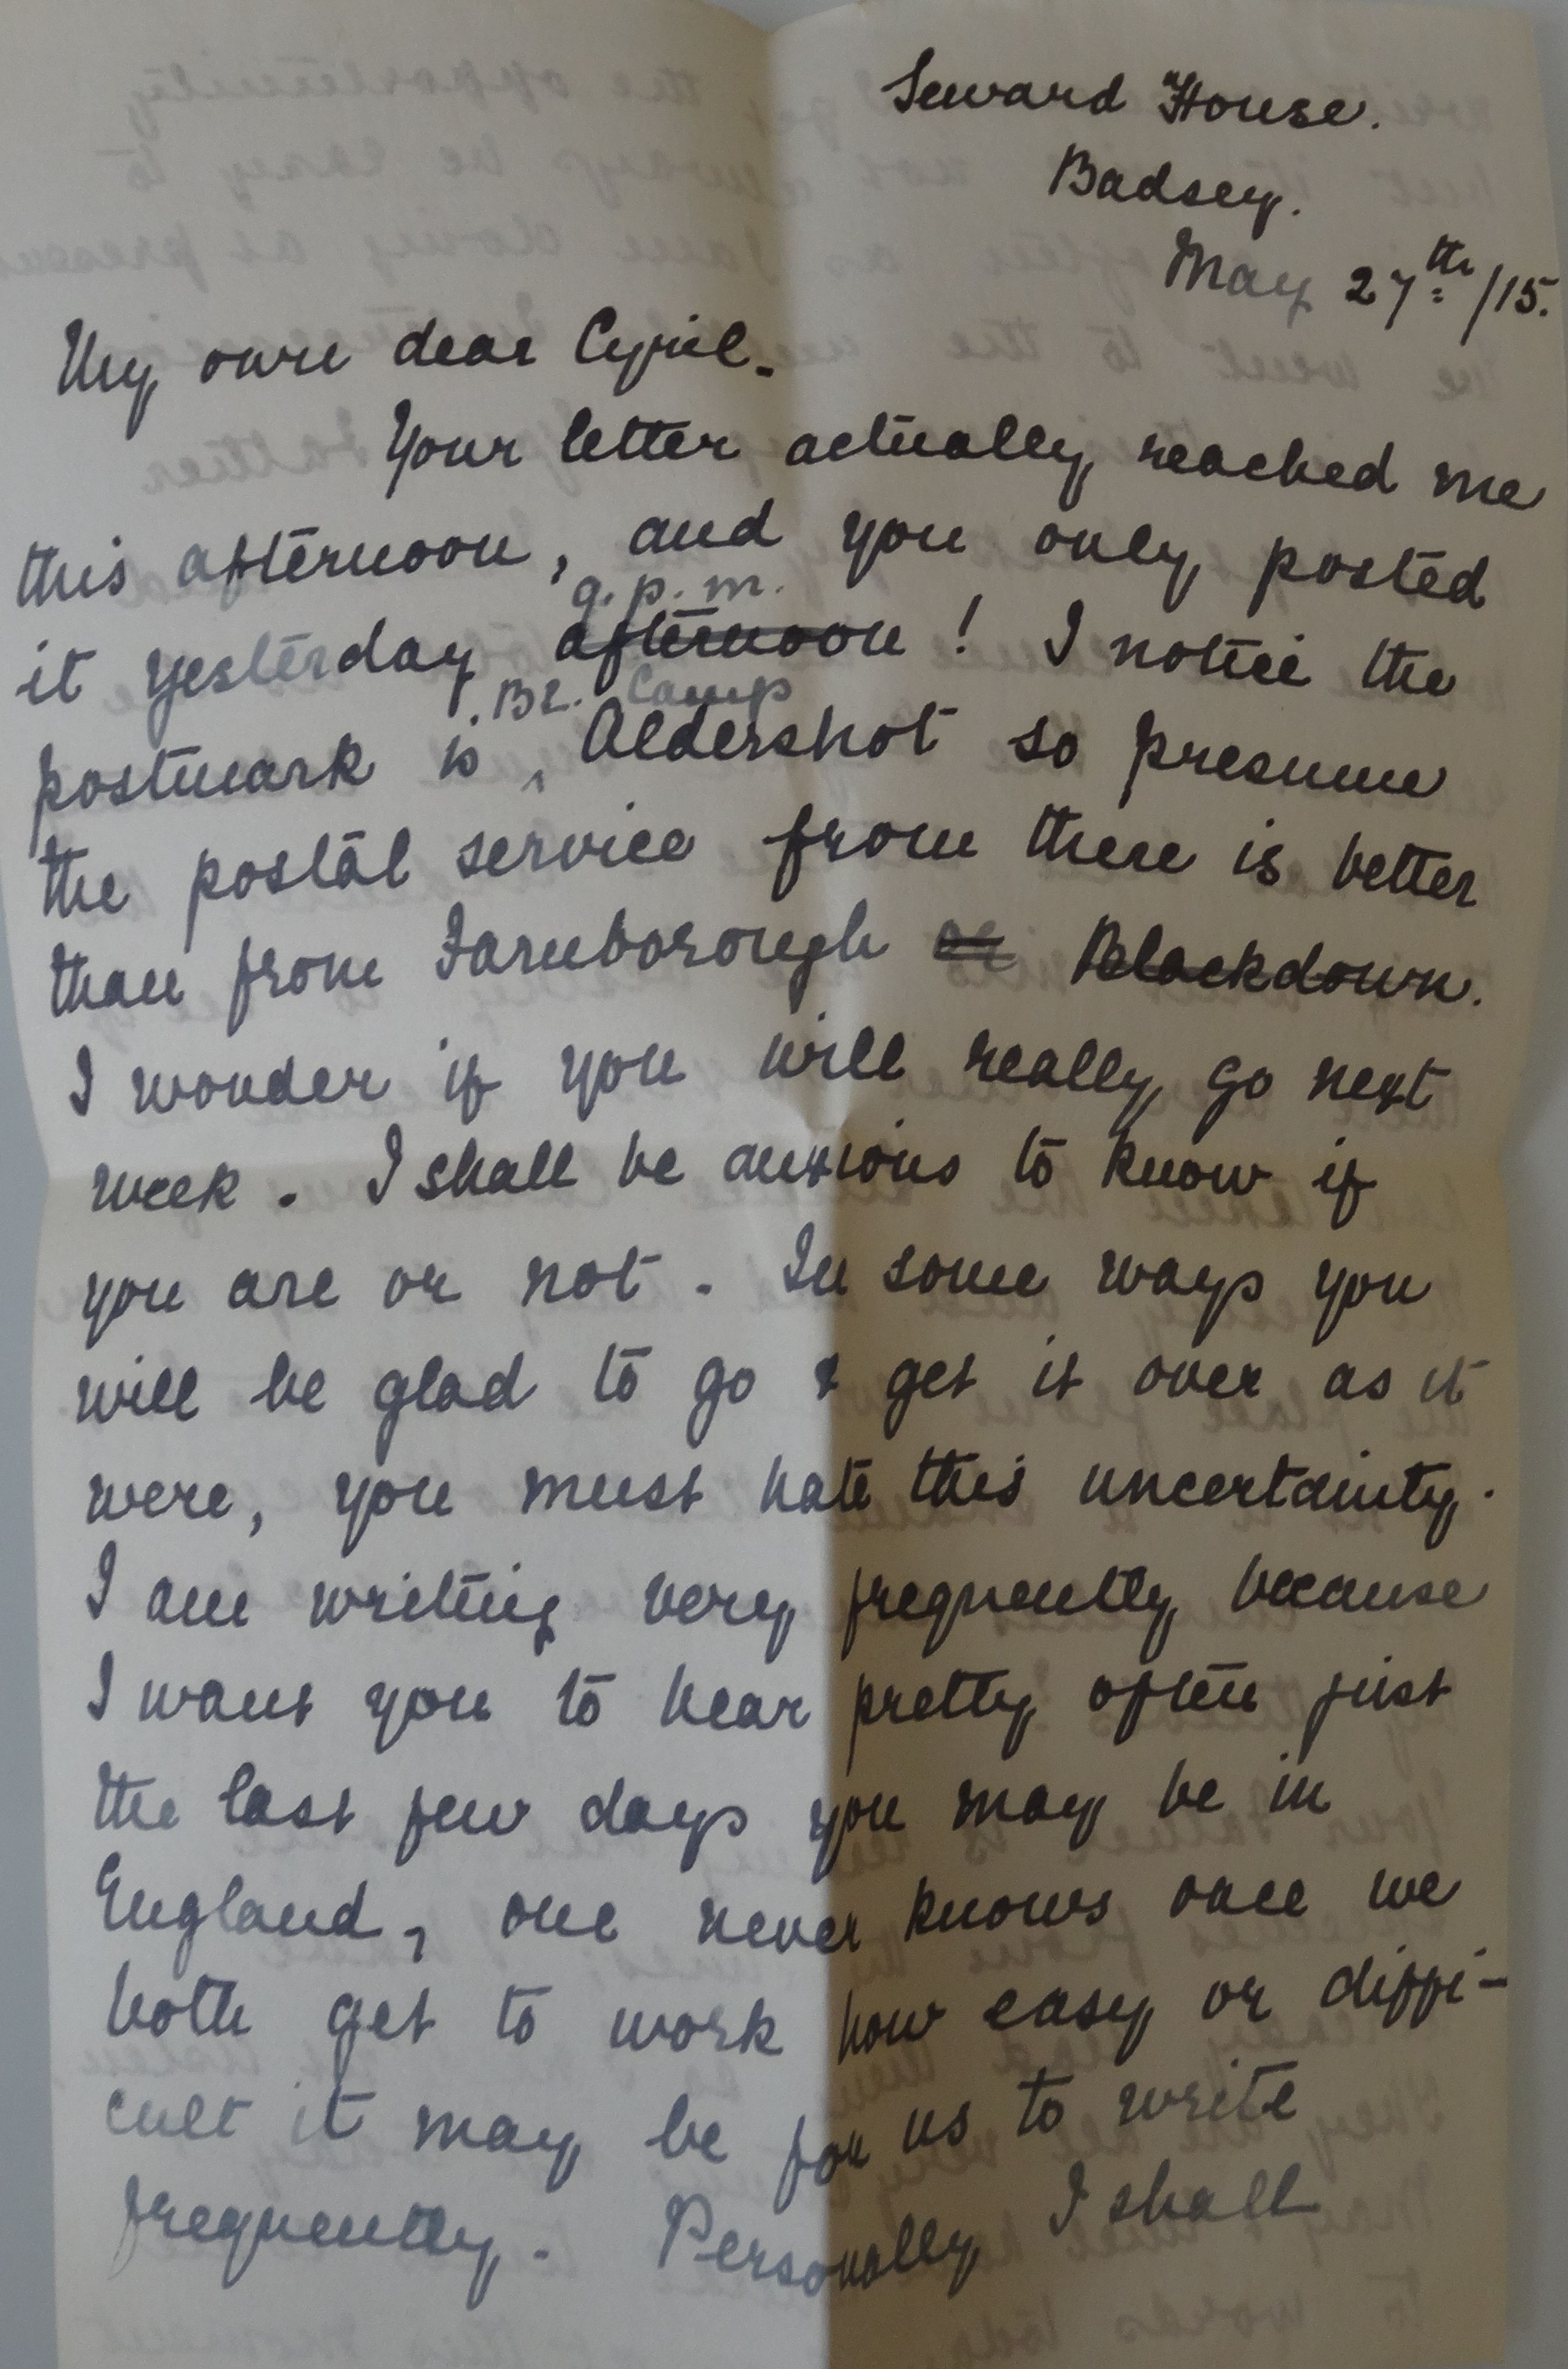 Seward House.
Badsey.
May 27th/15.
My own dear Cyril.
Your letter actually reached me
this afternoon, and you only posted
9.p.m.
it yesterday afternoon! I notice the
Bl. Camp
postmark is ^ Aldershot so presume
the postal service from there is better
than from Farnborough or Blackdown.
I wonder if you will really go next
week. I shall be anxious to know if
you are or not. In some ways you
will be glad to go & get it over as it
were, you must hate this uncertainty.
I am writing very frequently because
I want you to hear pretty often just
the last few days you may be in
England, one never knows once we
both get to work how easy or diffi-
cult it may be for us to write
frequently. Personally I shall